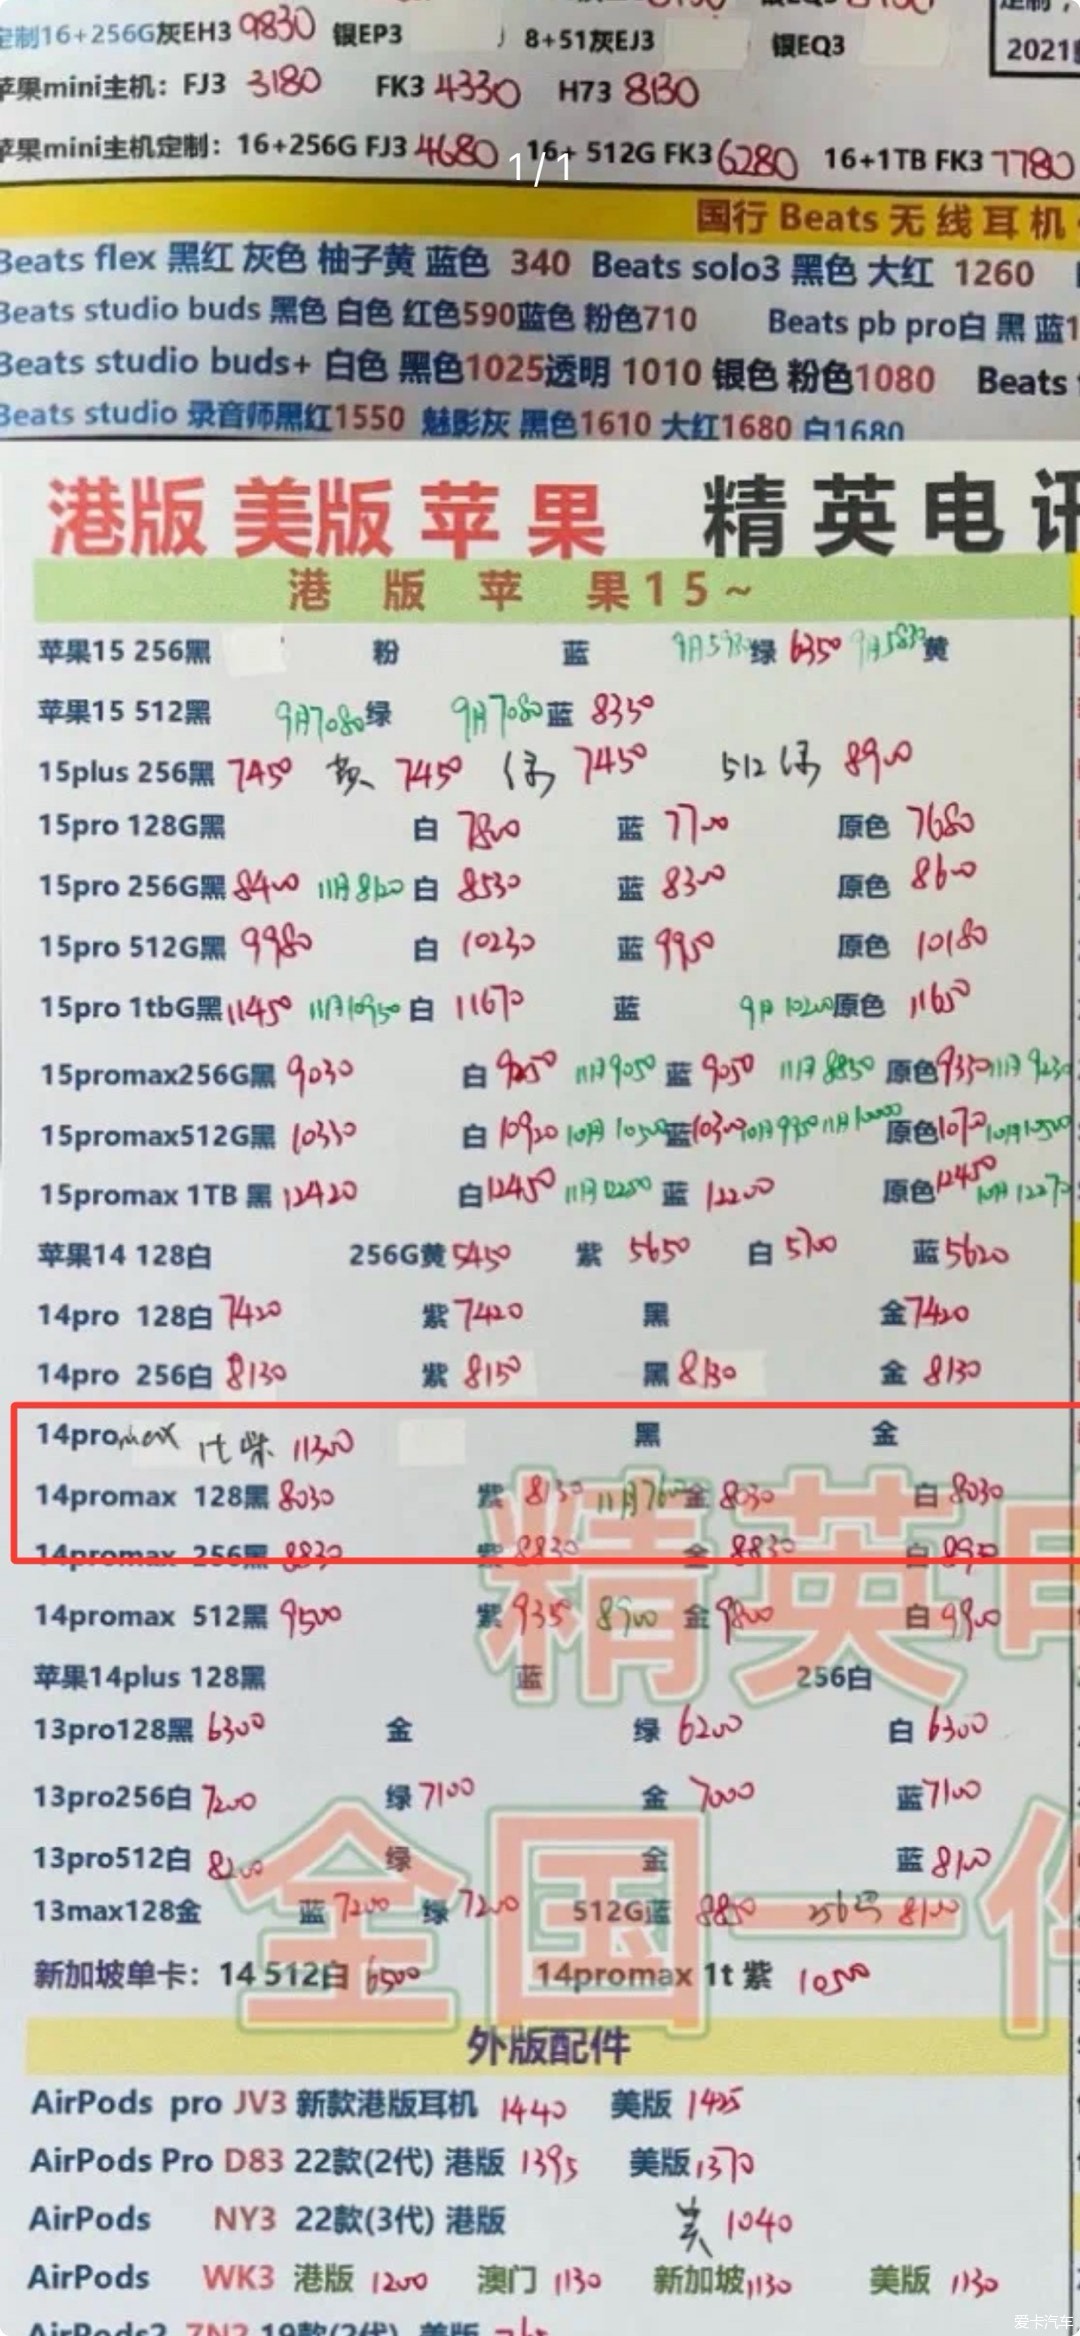 定制16+256G灰EH3 9830 银EP3 8+51灰EJ3 银EQ3
2021
苹果mini主机：FJ3 3180 FK3 4330 H73 8130
苹果mini主机定制：16+256G FJ3 4680 16+ 512G FK3 6280 16+1TB FK3 7780
1/1
国行 Beats 无线耳机
Beats flex 黑红 灰色 柚子黄 蓝色 340 Beats solo3 黑色 大红 1260
Beats studio buds 黑色 白色 红色590蓝色 粉色710 Beats pb pro白 黑 蓝1
Beats studio buds+ 白色 黑色1025透明 1010 银色 粉色1080 Beats
Beats studio 录音师黑红1550 魅影灰 黑色1610 大红1680 白1680
港版 美版 苹果 精英电讯
港版苹果15~
苹果15 256黑 粉 蓝 绿 6350 9月5830 黄
苹果15 512黑 9月7080 绿 9月7080 蓝 8350
15plus 256黑 7450 黄 7450 绿 7450 512 绿 8900
15pro 128G黑 白 7800 蓝 7700 原色 7680
15pro 256G黑 8400 11月8120 白 8530 蓝 8300 原色 8600
15pro 512G黑 9980 白 10230 蓝 9950 原色 10180
15pro 1tbG黑 11450 11月10950 白 11670 蓝 9月10200 原色 11650
15promax256G黑 9030 白 9250 11月9050 蓝 9050 11月8850 原色 9330 11月9230
15promax512G黑 10330 白 10920 10月10500 蓝 10300 10月9950 11月10000 原色 10月10500
15promax 1TB 黑 12420 白 12450 11月12200 蓝 12200 原色 12450 10月12270
苹果14 128白 256G黄 5450 紫 5650 白 5700 蓝 5620
14pro 128白 7420 紫 7420 黑 金 7420
14pro 256白 8130 紫 8150 黑 8130 金 8130
14promax 1t 紫 11300 黑 金
14promax 128黑 8030 紫 8130 金 8030 白 8030
14promax 256黑 8830 紫 8830 金 8830 白 8930
14promax 512黑 9500 紫 935 8900 金 9800 白 9900
苹果14plus 128黑 蓝 256白
13pro128黑 6300 金 绿 6200 白 6300
13pro256白 7200 绿 7100 金 7000 蓝 7100
13pro512白 8200 绿 金 蓝 8100
13max128金 蓝 7200 绿 7200 512G蓝 8850 256 8100
新加坡单卡：14 512白 6500 14promax 1t 紫 10500
精英电
全国一件
外版配件
AirPods pro JV3 新款港版耳机 1440 美版 1425
AirPods Pro D83 22款(2代) 港版 1395 美版 1370
AirPods NY3 22款(3代) 港版 美 1040
AirPods WK3 港版 1200 澳门 1130 新加坡 1130 美版 1130
AirPods2 ZN2 19款(2代) 美版
爱卡汽车